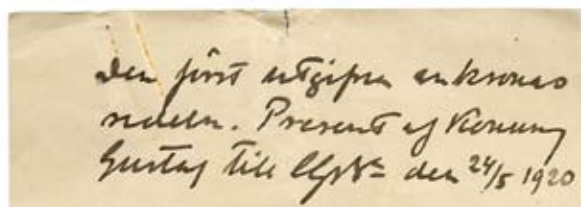 Den först utgifna enkronas
sedeln. Present af Konung
Gustaf till den 24/5 1920